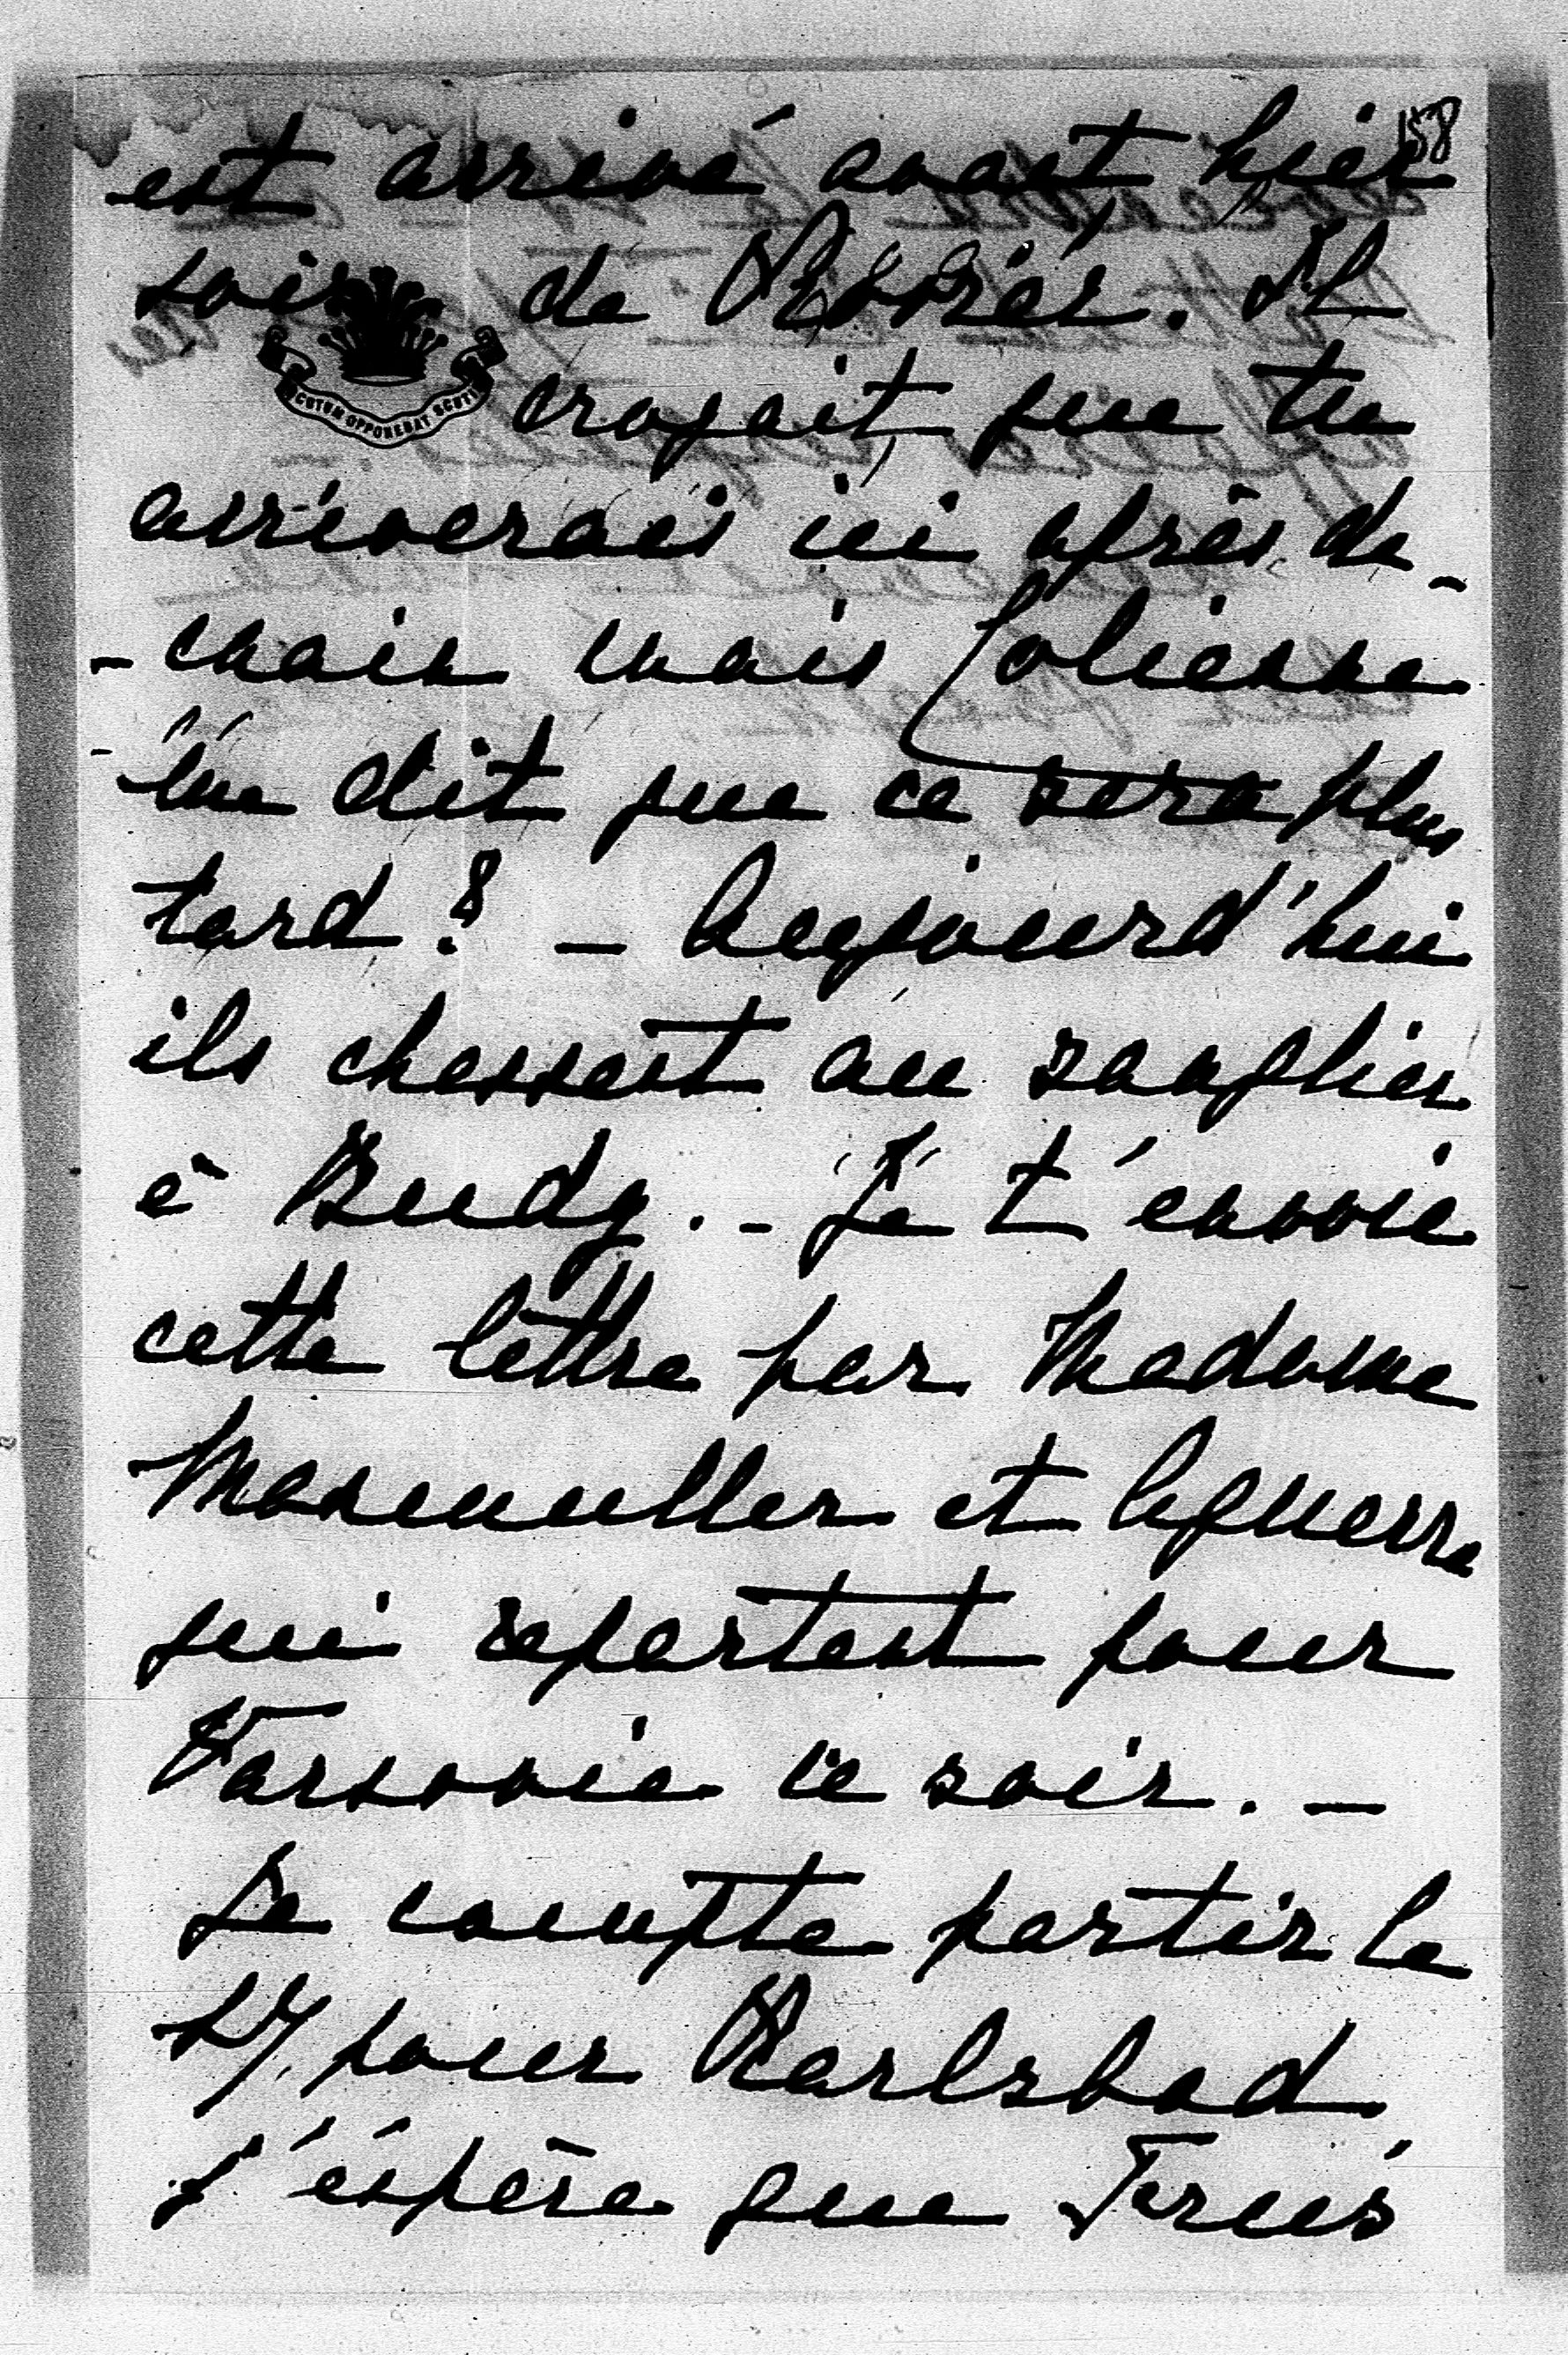 158
est arrivé avant hier
soir de Vêprés. Il
CUTUM OPPONEBAT SCUTI
croyait que tu
arriverais ici après de-
-main mais Joliesse
m'a dit que ce sera plus
tard? — Aujourd'hui
ils chassent au sanglier
à Rudy. - Je t'envoie
cette lettre par Madame
Maxmuller et Aguerra
qui repartent pour
Varsovie ce soir. —
Je compte partir le
27 pour Karlsbad
j'éspère que